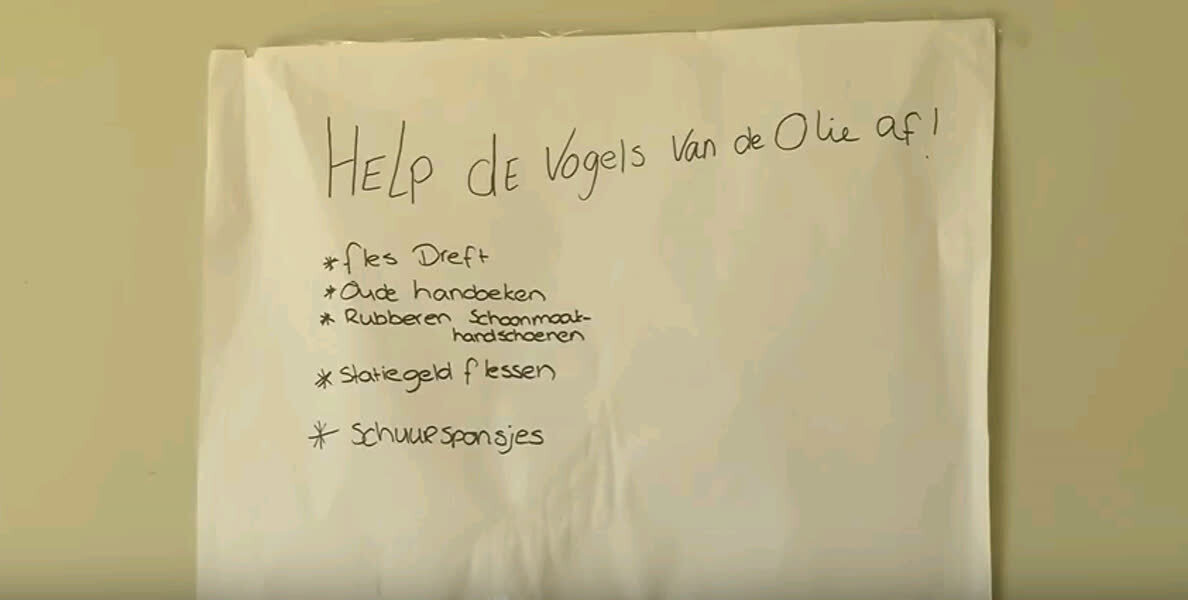 HELP dE Vogels Van de Olie af!
* fles Dreft
* Oude handbeken
* Rubberen Schoonmaak-
handschoenen
* Statiegeld flessen
* Schuursponsjes